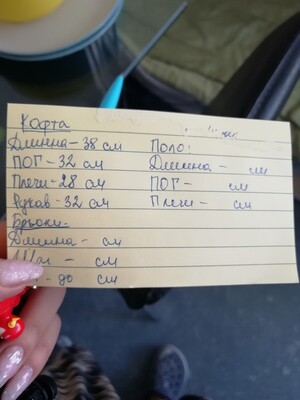 Кофта
Длинна - 38 см
ПОГ - 32 см
Плечи - 28 см
Рукав - 32 см
Брюки -
Длинна - см
Шаг - см
- до см
Поло:
Длинна - см
ПОГ - см
Плечи - см